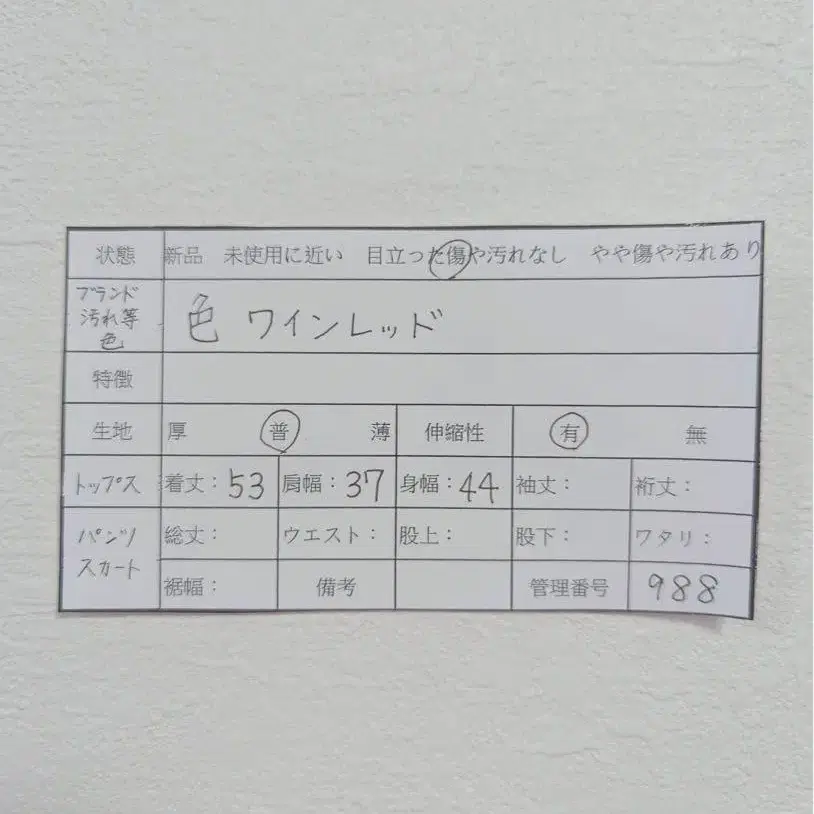 状態 新品 未使用に近い 目立った傷や汚れなし やや傷や汚れあり
ブランド
汚れ等
色
色 ワインレッド
特徴
生地 厚 普 薄 伸縮性 有 無
トップス 着丈：53 肩幅：37 身幅：44 袖丈： 裄丈：
パンツ
スカート
総丈： ウエスト： 股上： 股下： ワタリ：
裾幅： 備考 管理番号 988